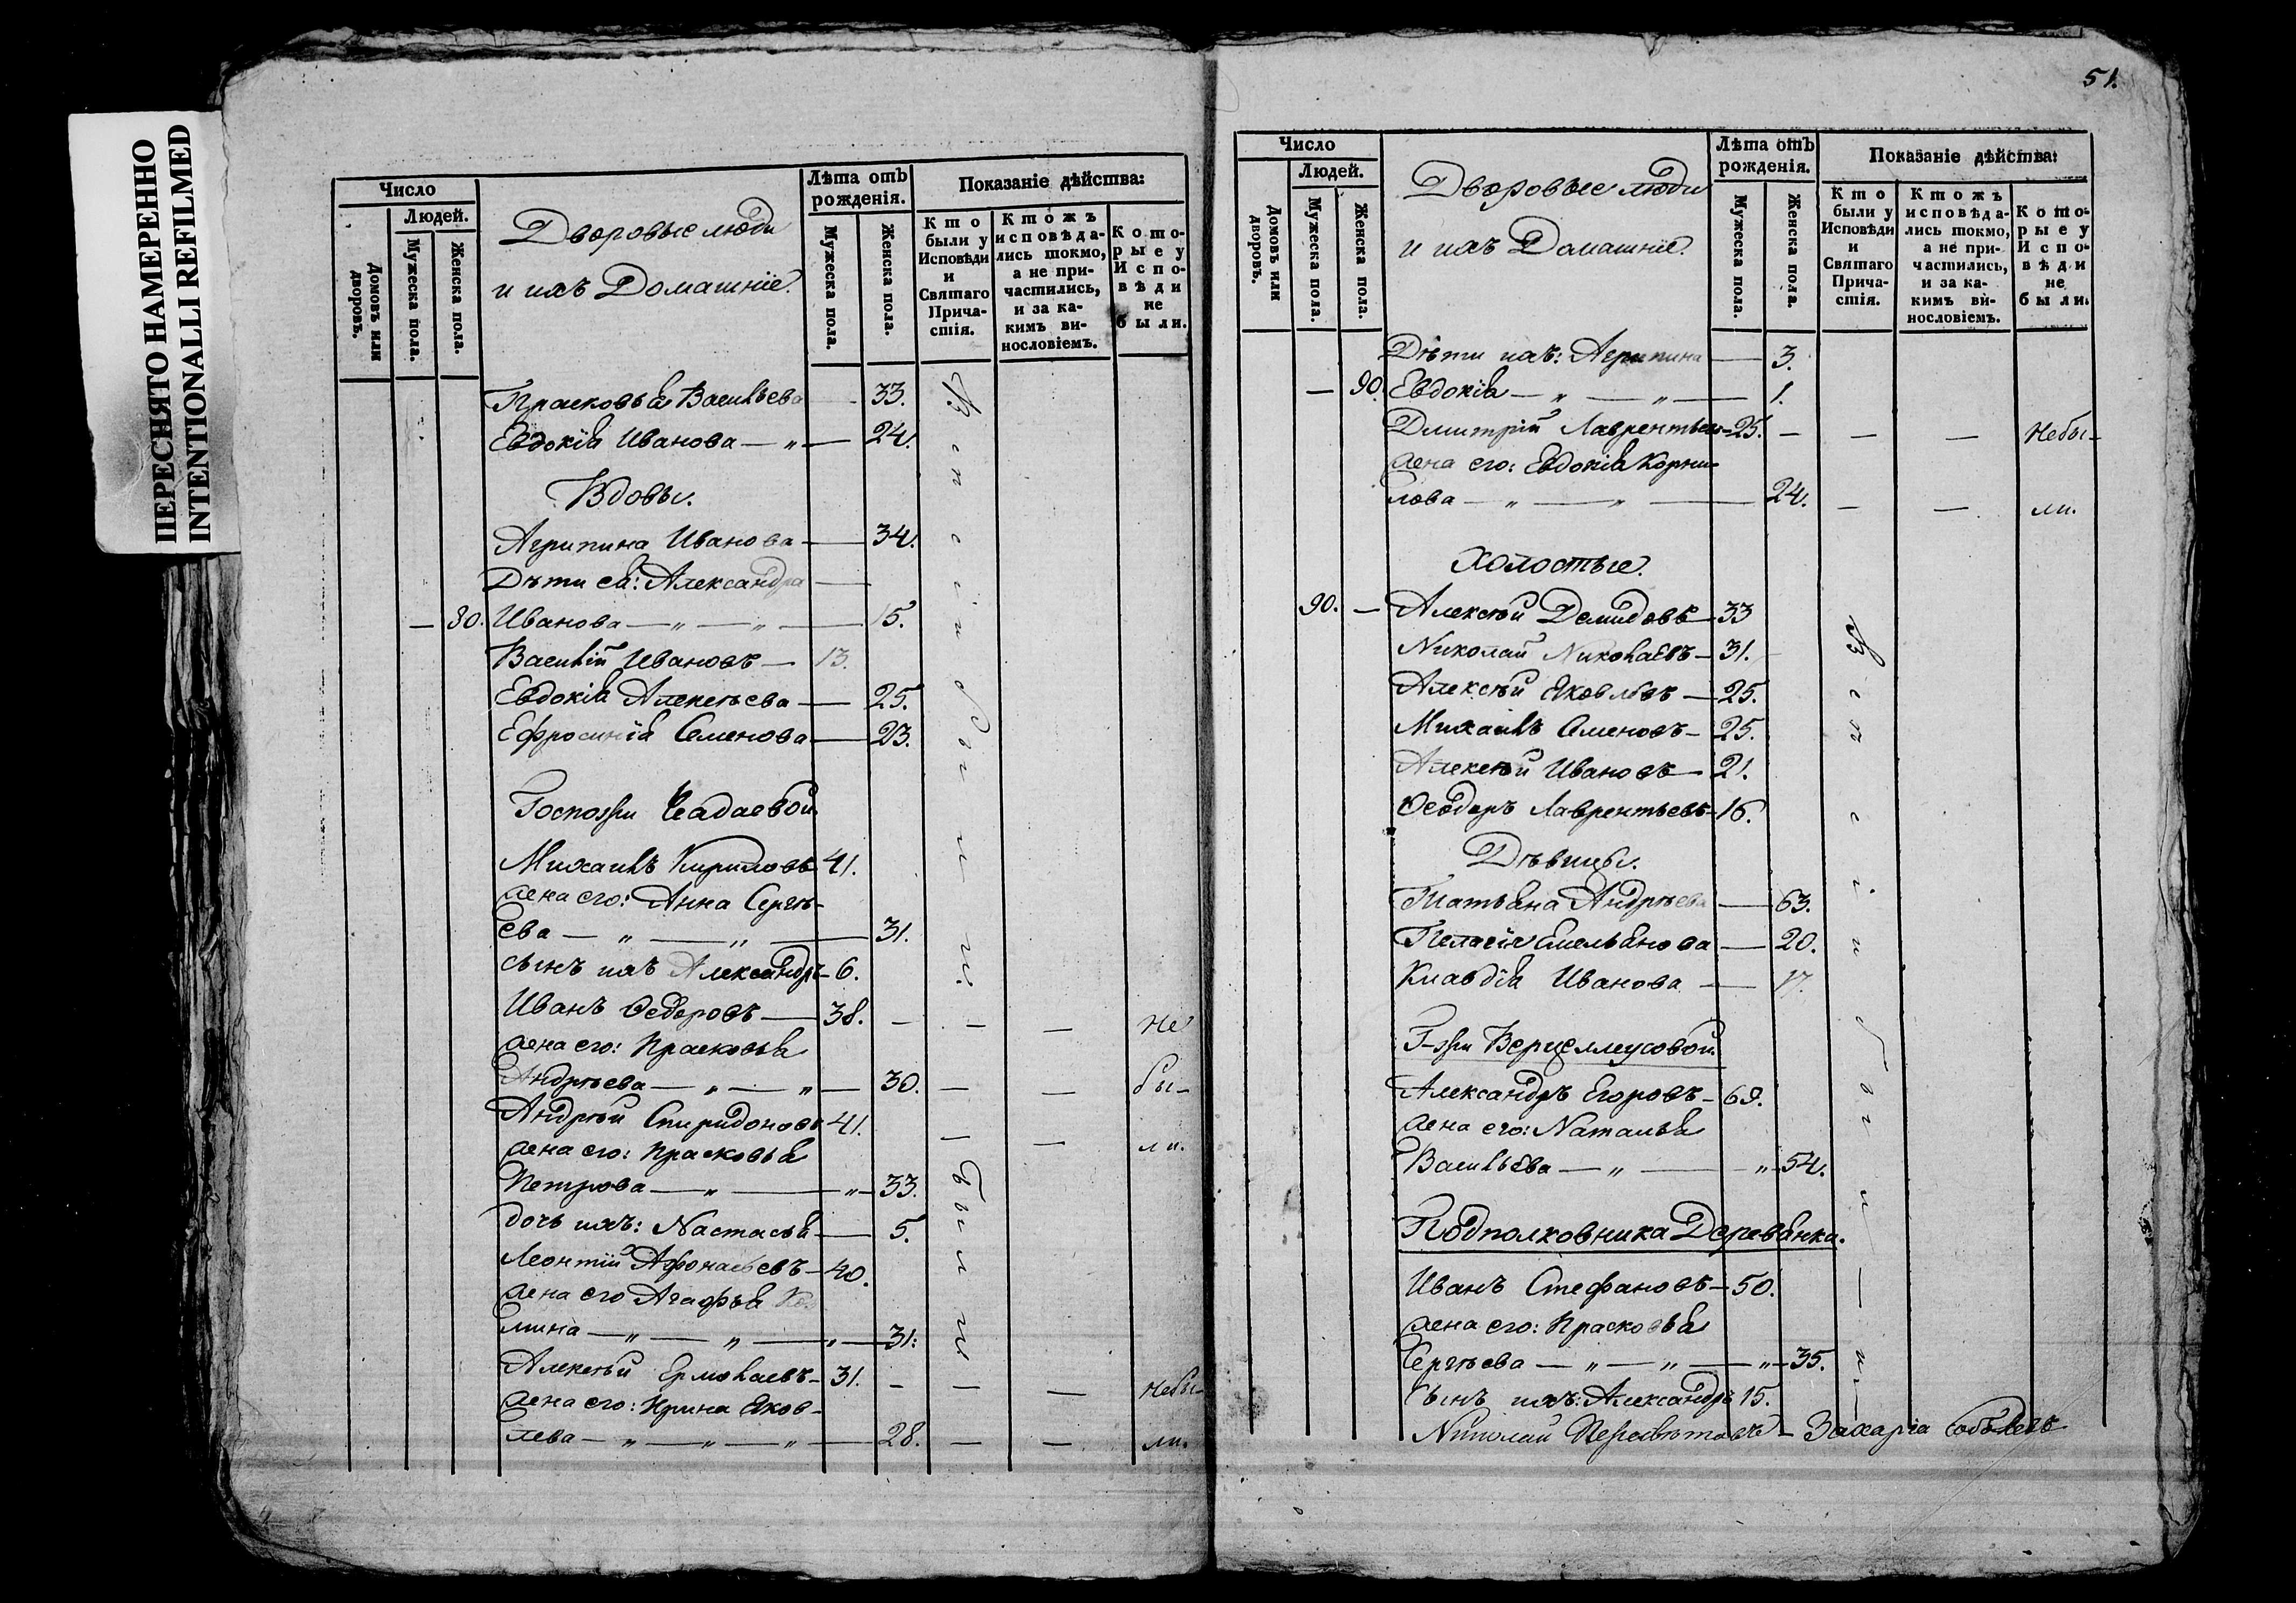 ПЕРЕСНЯТО НАМЕРЕННО
INTENTIONALLI REFILMED
Число
Людей.
Домовъ или дворовъ.
Мужеска пола.
Женска пола.
Дворовые люди
и ихъ Домашніе.
Лѣта отъ рожденія.
Мужеска пола.
Женска пола.
Показаніе дѣйства:
Кто были у Исповѣди и Святаго Причастія.
Ктожъ исповѣдались токмо, а не причастились, и за какимъ винословіемъ.
Которые у Исповѣди не были.
Прасковья Васильева — 33.
Евдокія Иванова — „ — 24.
Вдовы.
Агрипина Иванова — 34.
Дѣти ея: Александра —
— 80. Иванова — „ — „ — 15.
Василій Ивановъ — 13.
Евдокія Алексѣева — 25.
Ефросинія Семенова — 23.
Госпожи Чеадаевой.
Михаилъ Кириловъ 41.
жена его: Анна Сергѣ-
ева — „ — „ — 31.
сынъ ихъ Александръ — 6.
Иванъ Ѳедоровъ — 38. — — — Не
жена его: Прасковья
Андрѣева — „ — „ — 30. — — бы-
Андрей Спиридоновъ 41. — — ли.
жена его: Прасковья
Петрова — „ — „ — 33.
дочь ихъ: Настасья — 5.
Леонтій Афонасьевъ — 40.
жена его Агафья
мина — „ — „ — „ — 31.
Алексѣй Ермолаевъ — 31. — — — Небы-
жена его: Ирина Яков-
лева — „ — „ — „ — 28. — — ли.
51.
Число
Людей.
Домовъ или дворовъ.
Мужеска пола.
Женска пола.
Дворовые люди
и ихъ Домашніе.
Лѣта отъ рожденія.
Мужеска пола.
Женска пола.
Показаніе дѣйства:
Кто были у Исповѣди и Святаго Причастія.
Ктожъ исповѣдались токмо, а не причастились, и за какимъ винословіемъ.
Которые у Исповѣди не были.
Дѣти ихъ: Агрипина — 3.
— 90. Евдокія — „ — „ — 1.
Дмитрій Лаврентьевъ — 25. — — — Небы-
жена его: Евдокія Корни-
лова — „ — „ — 24. — — ли.
Холостые.
90. — Алексѣй Демидовъ — 33
Николай Николаевъ — 31.
Алексѣй Яковлевъ — 25.
Михаилъ Семеновъ — 25.
Алексѣй Ивановъ — 21.
Ѳеодоръ Лаврентьевъ — 16.
Дѣвицы.
Татьяна Андрѣева — 63.
Пелагія Емельянова — 20.
Клавдія Иванова — 17.
Г-жи
Александръ Егоровъ —
жена его: Наталья
Васильева — „ — „ — 54.
Подполковника Деревянки.
Иванъ Стефановъ — 50.
жена его: Прасковья
Сергѣева — „ — „ — „ — 35.
Сынъ ихъ: Александръ 15.
Николай — Захарія